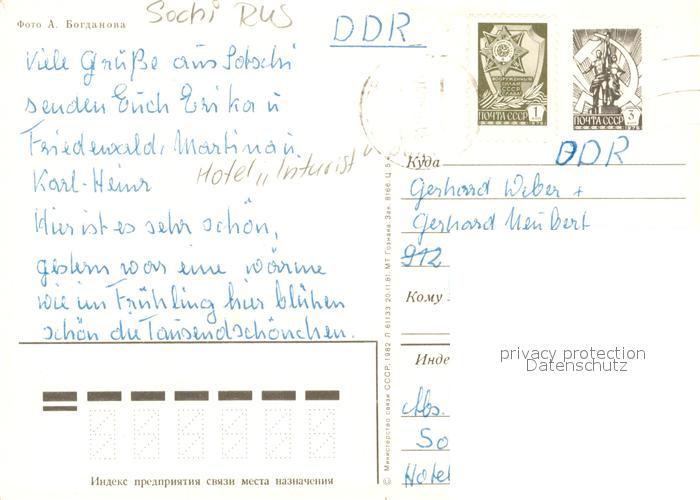 Фото А. Богданова
Sochi RUS
DDR
Viele Grüße aus Sotschi
senden Euch Erika u
Friedewald, Martina u
Karl-Heinz
Hotel „Inturist"
Hier ist es sehr schön,
gestern war eine wärme
wie im Frühling hier blühen
schön die Tausendschönchen.
Индекс предприятия связи места назначения
© Министерство связи СССР, 1982 Л 61133 20.11.81. МТ Гознака. Зак. 8166. Ц.
ВООРУЖЕННЫЕ СИЛЫ СССР
1
ПОЧТА СССР
1976
ПОЧТА СССР
3
1976
DDR
Куда
Gerhard Weber +
Gerhard Neubert
912
Кому
Инде
privacy protection
Datenschutz
Abs.
So
Hotel